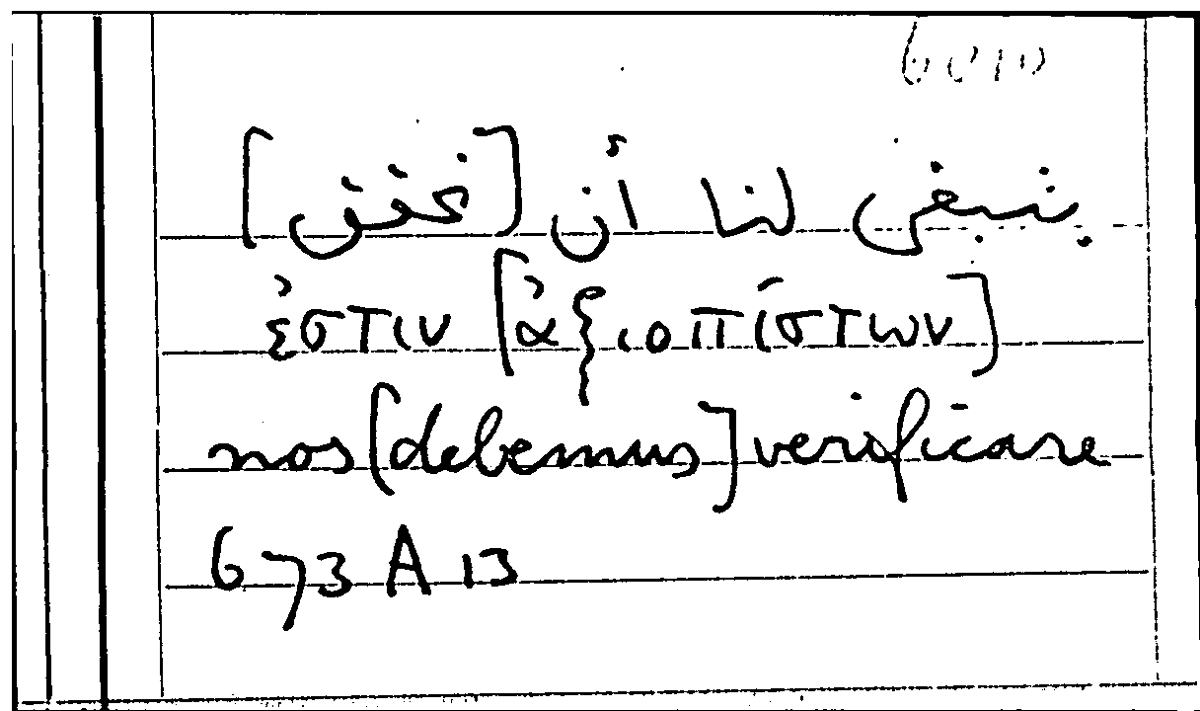 ينبغى لنا أن [نحقق]
ἐστιν [ἀξιοπίστων]
nos [debemus] verificare
673 A 13